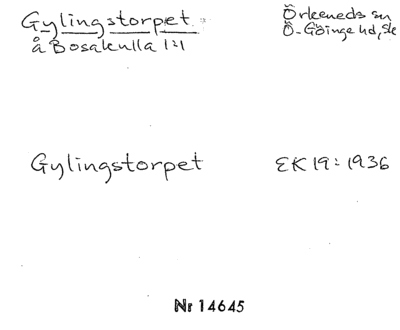 Gylingstorpet
å Bosakulla 1:1
Örkeneds sn
Ö-Göinge hd, Sk
Gylingstorpet
EK 19: 1936
Nr 14645